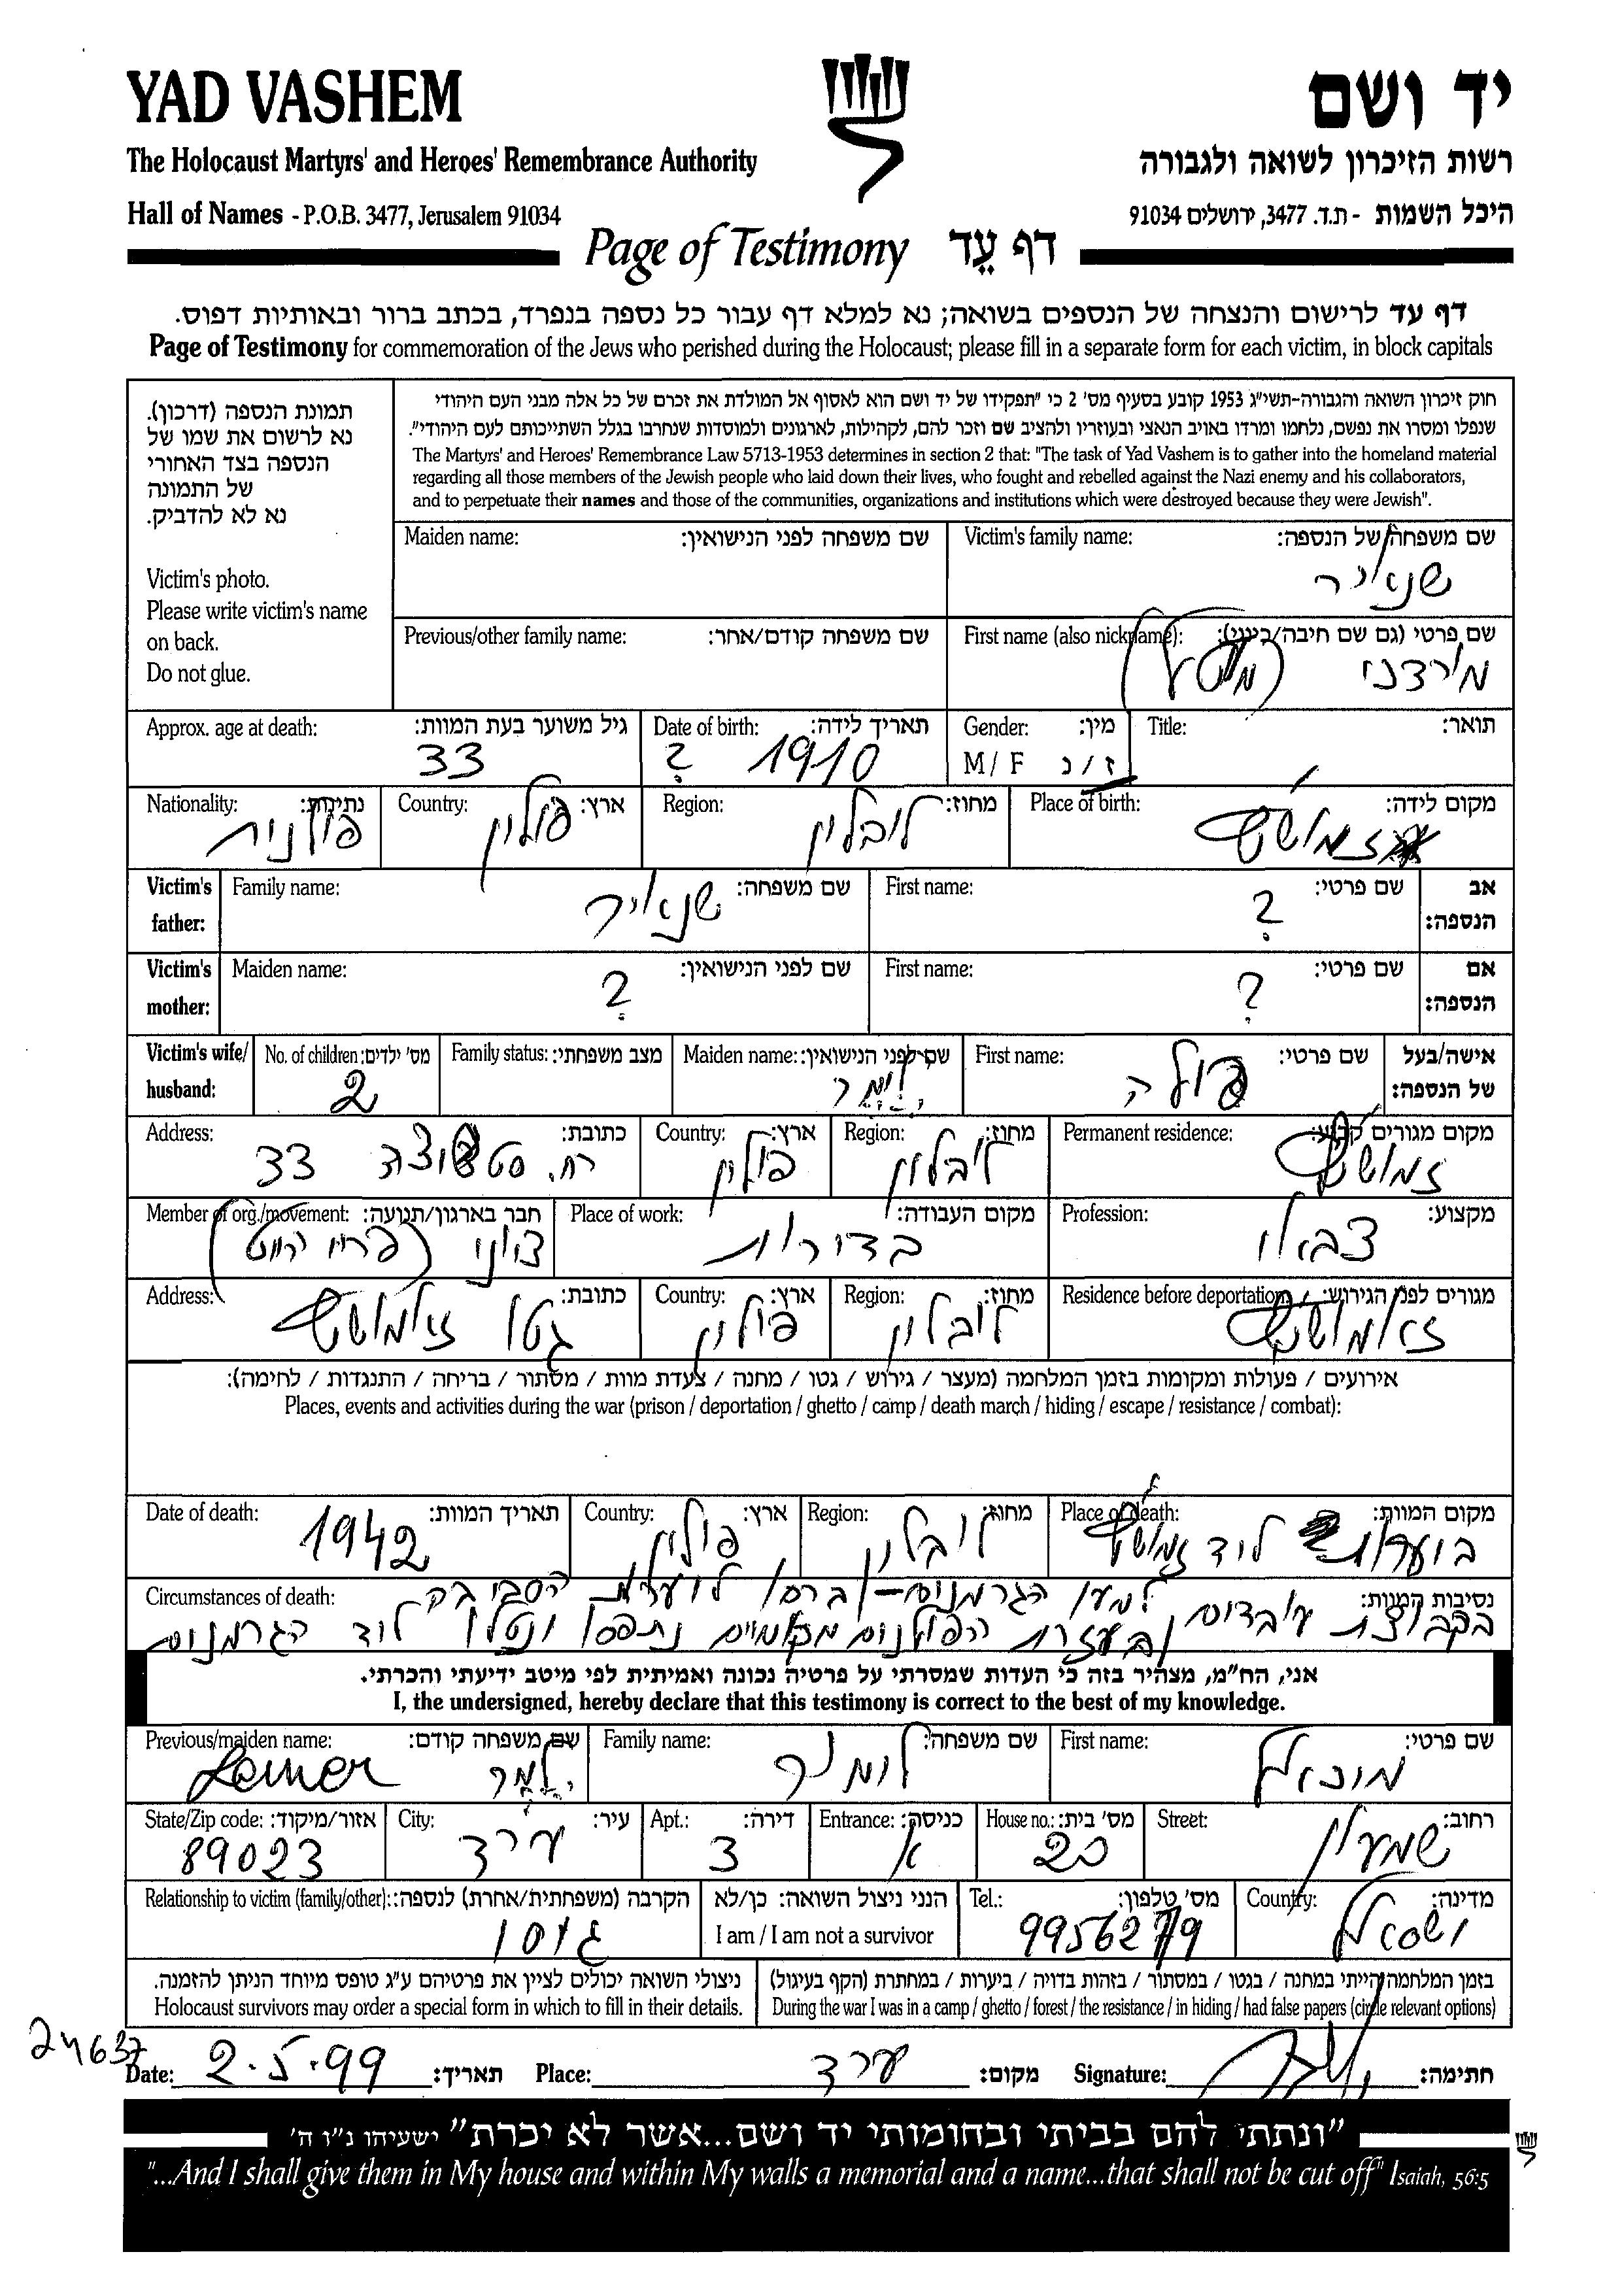 YAD VASHEM
יד ושם
The Holocaust Martyrs' and Heroes' Remembrance Authority
רשות הזיכרון לשואה ולגבורה
Hall of Names - P.O.B. 3477, Jerusalem 91034
היכל השמות - ת.ד. 3477, ירושלים 91034
Page of Testimony דף עֵד
דף עד לרישום והנצחה של הנספים בשואה; נא למלא דף עבור כל נספה בנפרד, בכתב ברור ובאותיות דפוס.
Page of Testimony for commemoration of the Jews who perished during the Holocaust; please fill in a separate form for each victim, in block capitals
תמונת הנספה (דרכון).
נא לרשום את שמו של
הנספה בצד האחורי
של התמונה
נא לא להדביק.
Victim's photo.
Please write victim's name
on back.
Do not glue.
חוק זיכרון השואה והגבורה-תשי"ג 1953 קובע בסעיף מס' 2 כי "תפקידו של יד ושם הוא לאסוף אל המולדת את זכרם של כל אלה מבני העם היהודי
שנפלו ומסרו את נפשם, נלחמו ומרדו באויב הנאצי ובעוזריו ולהציב שם וזכר להם, לקהילות, לארגונים ולמוסדות שנחרבו בגלל השתייכותם לעם היהודי".
The Martyrs' and Heroes' Remembrance Law 5713-1953 determines in section 2 that: "The task of Yad Vashem is to gather into the homeland material
regarding all those members of the Jewish people who laid down their lives, who fought and rebelled against the Nazi enemy and his collaborators,
and to perpetuate their names and those of the communities, organizations and institutions which were destroyed because they were Jewish".
Victim's family name: שם משפחה של הנספה:
שנאיר
Maiden name: שם משפחה לפני הנישואין:
First name (also nickname): שם פרטי (גם שם חיבה/כינוי):
מורדכי
Previous/other family name: שם משפחה קודם/אחר:
Title: תואר:
Gender: מין:
M / F ז / נ
Date of birth: תאריך לידה:
1910 ?
Approx. age at death: גיל משוער בעת המוות:
33
Place of birth: מקום לידה:
זמושץ
Region: מחוז:
לובלין
Country: ארץ:
פולין
Nationality: נתינות:
פולנית
Victim's father: אב הנספה:
First name: שם פרטי:
?
Family name: שם משפחה:
שנאיר
Victim's mother: אם הנספה:
First name: שם פרטי:
?
Maiden name: שם לפני הנישואין:
?
Victim's wife/ husband: אישה/בעל של הנספה:
First name: שם פרטי:
פולה
Maiden name: שם לפני הנישואין:
למר
Family status: מצב משפחתי:
No. of children: מס' ילדים:
2
Permanent residence: מקום מגורים קבוע:
זמושץ
Region: מחוז:
לובלין
Country: ארץ:
פולין
Address: כתובת:
רח. 33
Profession: מקצוע:
צבאי
Place of work: מקום העבודה:
בדירות
Member of org./movement: חבר בארגון/תנועה:
ציוני
Residence before deportation: מגורים לפני הגירוש:
זאמושץ
Region: מחוז:
לובלין
Country: ארץ:
פולין
Address: כתובת:
גטו זאמושץ
אירועים / פעולות ומקומות בזמן המלחמה (מעצר / גירוש / גטו / מחנה / צעדת מוות / מסתור / בריחה / התנגדות / לחימה):
Places, events and activities during the war (prison / deportation / ghetto / camp / death march / hiding / escape / resistance / combat):
Place of death: מקום המוות:
ביערות ליד זמושץ
Region: מחוז:
לובלין
Country: ארץ:
פולין
Date of death: תאריך המוות:
1942
Circumstances of death: נסיבות המוות:
בקבוצת עובדים למען הגרמנים- ברחו ליערות הסביבה
ובעזרת הפולנים מקומיים נתפסו ונטלו ליד הגרמנים
אני, הח"מ, מצהיר בזה כי העדות שמסרתי על פרטיה נכונה ואמיתית לפי מיטב ידיעתי והכרתי.
I, the undersigned, hereby declare that this testimony is correct to the best of my knowledge.
First name: שם פרטי:
מיכאל
Family name: שם משפחה:
Previous/maiden name: שם משפחה קודם:
למר Lemer
Street: רחוב:
שמעון
House no.: מס' בית:
20
Entrance: כניסה:
א
Apt.: דירה:
3
City: עיר:
ערד
State/Zip code: אזור/מיקוד:
89023
Country: מדינה:
ישראל
Tel.: מס' טלפון:
9956279
הנני ניצול השואה: כן/לא
I am / I am not a survivor
Relationship to victim (family/other): הקרבה (משפחתית/אחרת) לנספה:
גיסו
בזמן המלחמה הייתי במחנה / בגטו / במסתור / בזהות בדויה / ביערות / במחתרת (הקף בעיגול)
During the war I was in a camp / ghetto / forest / the resistance / in hiding / had false papers (circle relevant options)
ניצולי השואה יכולים לציין את פרטיהם ע"ג טופס מיוחד הניתן להזמנה.
Holocaust survivors may order a special form in which to fill in their details.
24637
Date: 2.5.99 תאריך:
Place: ערד מקום:
Signature: חתימה:
"ונתתי להם בביתי ובחומותי יד ושם...אשר לא יכרת" ישעיהו נ"ו ה'
"...And I shall give them in My house and within My walls a memorial and a name...that shall not be cut off" Isaiah, 56:5